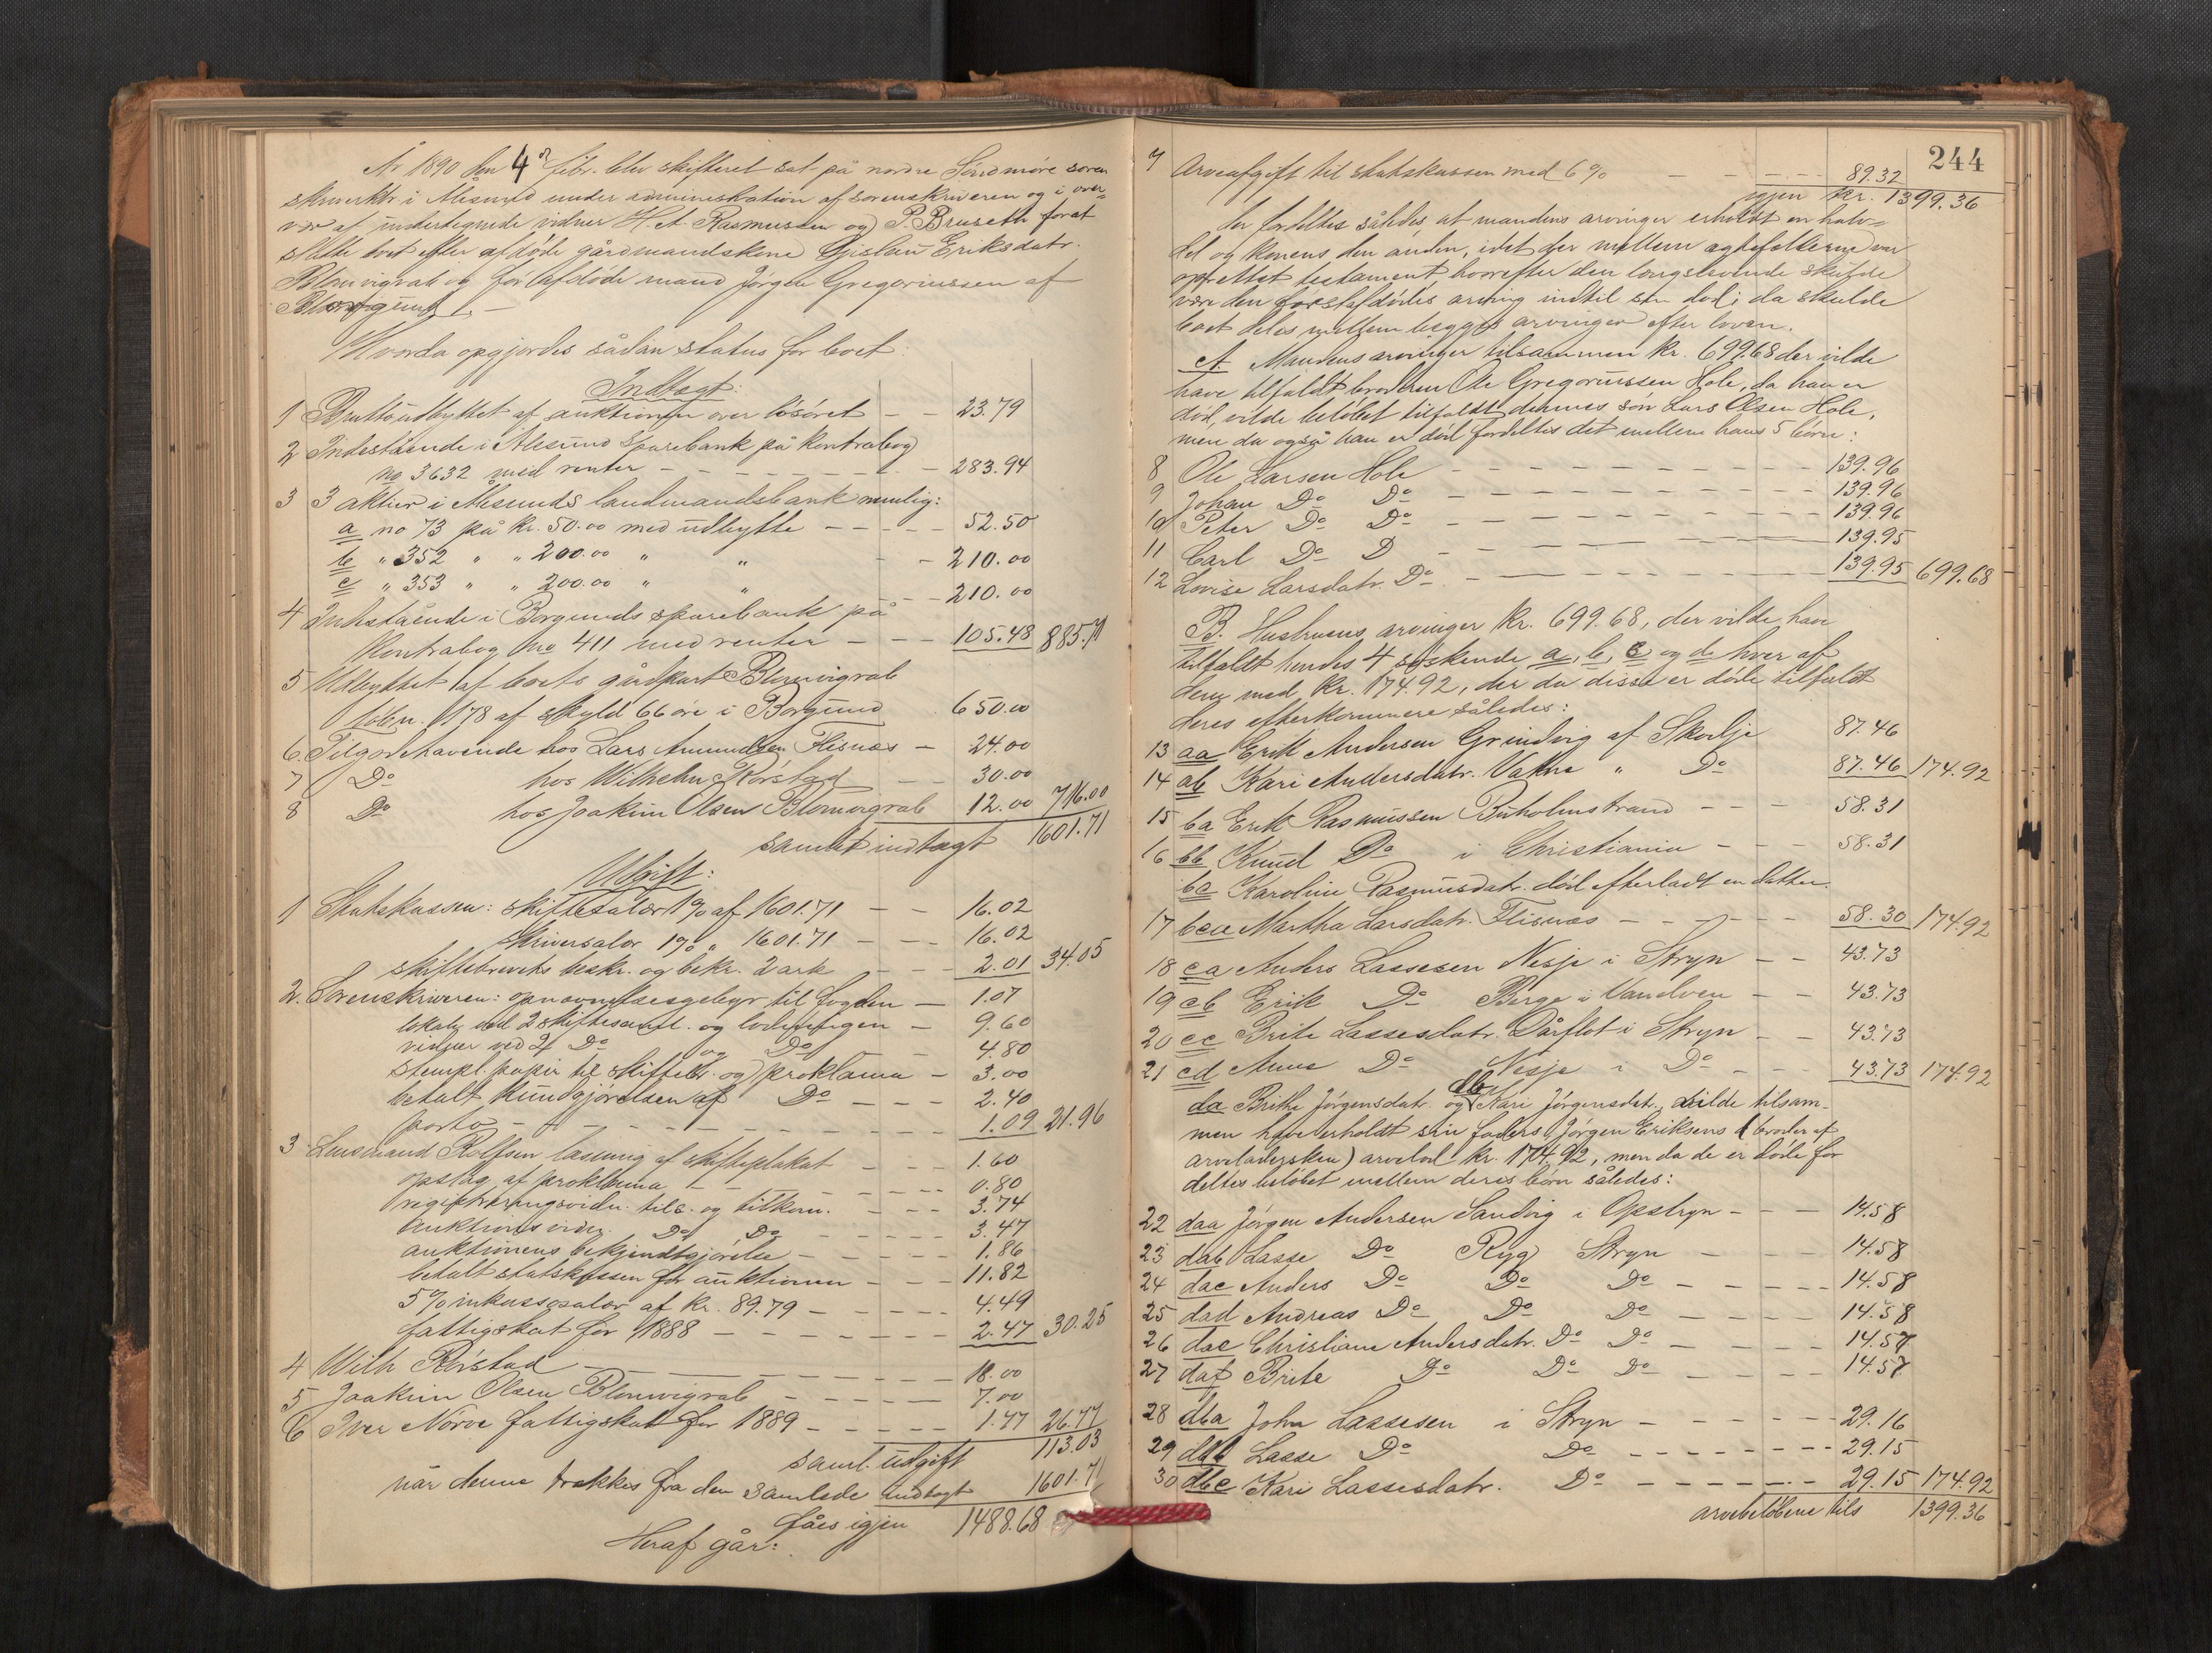 År 1890 den 4de febr. blev skifteret sat på nordre Söndmöre soren
skriverktr. i Ålesund under administration af sorenskriveren og i over-
vær af undertegnede vidner H. A. Rasmussen og P. Bruseth for at
slutte boet efter afdöde gårdmandskone Gjislau Eriksdatr.
Blomvigrab og förstafdöde mand Jörgen Gregoriussen af
Borgund. –
Hvorda opgjordes sådan status for boet:
Indtægt:
1 Bruttoudbyttet af auktionen over lösöret – – 23.79
2 Indestående i Ålesund Sparebank på kontrabog
no 3632 med renter – – – – – – – 283.94
3 3 aktier i Ålesunds landmandsbank nemlig:
a no 73 på kr. 50.00 med udbytte – – – – 52.50
b " 352 " " 200.00 " " – – 210.00
c " 353 " " 200.00 " " – – 210.00
4 Indestående i Borgunds sparebank på
Kontrabog No 411 med renter – – – 105.48 885.71
5 Udbyttet af boets gårdpart Blomvigrab
löbn. 178 af skyld 66 öre i Borgund 650.00
6 Tilgodehavende hos Lars Amundsen Flisnæs – 24.00
7 Do hos Wilhelm Rörstad – – 30.00
8 Do hos Joakim Olsen Blomvigrab 12.00 716.00
samlet indtægt 1601.71
Udgift:
1 Statskassen: skiftesalær 1% af 1601.71 – – 16.02
skriversalær 1% " 1601.71 – – – 16.02
skiftebrevets beskr. og bekr. 2 ark – – 2.01 34.05
2. Sorenskriveren: opnævnelsesgebyr til fogden – 1.07
lokale ved 2 skiftesaml. og lodseddelen – 9.60
vidner ved 2 Do og Do – 4.80
stempl. papir til skiftebr. og proklama – 3.00
betalt kundgjörelsen af Do – – – 2.40
porto – – – – – – – – – 1.09 21.96
3 Lensmand Rolfsen læsning af skifteplakat – – – 1.60
opslag af proklama – – – – – 0.80
registreringsvidn. tils. og tilkom. – – – – 3.74
auktionsvidn. Do Do – – – – – 3.47
auktionens bekjendtgjörelse – – – – – 1.86
betalt statskassen for auktionen – – – 11.82
5% inkassosalær af kr. 89.79 – – – – – 4.49
fattigskat for 1888 – – – – – – – – 2.47 30.25
4 Wilh Rörstad – – – – – – – – – 18.00
5 Joakim Olsen Blomvigrab – – – – – 7.00
6 Iver Nörve fattigskat for 1889 – – – – – 1.77 26.77
saml. udgift 113.03
når denne trækkes fra den samlede indtægt 1601.71
fåes igjen 1488.68
Heraf går:
244
7 Arveafgift til statskassen med 6% – – – – – 89.32
igjen kr. 1399.36
der fordeltes således at mandens arvinger erholdt en halv-
del og konens den anden, idet der mellem ægtefolkene var
oprettet testament, hvorefter den længstlevende skulde
være den forstafdödes arving indtil sin död; da skulde
boet deles mellem begges arvinger efter loven.
A. Mandens arvinger tilsammen kr. 699.68 der vilde
have tilfaldt broderen Ole Gregoriussen Hole, da han er
död, vilde belöbet tilfaldt dennes sön Lars Olsen Hole,
men da også han er död fordeltes det mellem hans 5 börn:
8 Ole Larsen Hole – – – – – – – – – 139.96
9 Johan Do Do – – – – – – – – 139.96
10 Peter Do Do – – – – – – – – 139.96
11 Carl Do D – – – – – – – – 139.95
12 Lovise Larsdatr. Do – – – – – – – 139.95 699.68
B. Hustruens arvinger kr. 699.68, der vilde have
tilfaldt hendes 4 söskende a, b, c og d hver af
dem med kr. 174.92, der da disse er döde tilfaldt
deres efterkommere således:
13 aa Erik Andersen Grindvig af Skodje 87.46
14 ab Kari Andersdatr. Vatne " Do 87.46 174.92
15 ba Erik Rasmussen Buholmstrand – – – 58.31
16 bb Knud Do i Christiania – – – 58.31
bc Karoline Rasmusdatr. död efterladt en datter.
17 bca Martha Larsdatr. Flisnæs – – – – – – 58.30 174.92
18 ca Anders Lassesen Nesje i Stryn – – 43.73
19 cb Erik Do Berge i Vandven – – 43.73
20 cc Brite Lassesdatr. Dårflot i Stryn – – 43.73
21 cd Anne Do Nesje i Do – – – 43.73 174.92
da Brithe Jörgensdatr. og db Kari Jörgensdatr., vilde tilsam-
men have erholdt sin faders Jörgen Eriksens (broder af
arveladersken) arvelod kr. 174.92, men da de er döde for
deltes belöbet mellem deres börn således:
22 daa Jörgen Andersen Sandvig i Opstryn – – – 14.58
23 dab Lasse Do Ryg Stryn – – – 14.58
24 dac Anders Do Do Do – – – – – 14.58
25 dad Andreas Do Do Do – – – – 14.58
26 dae Christiane Andersdatr. Do Do – – – – 14.57
27 daf Brite Do Do Do – – – – – 14.57
28 dba John Lassesen i Stryn – – – – – – – 29.16
29 dbb Lasse Do Do – – – – – – – – 29.15
30 dbc Kari Lassesdatr. Do – – – – – – – 29.15 174.92
arvebelöbene tils 1399.36